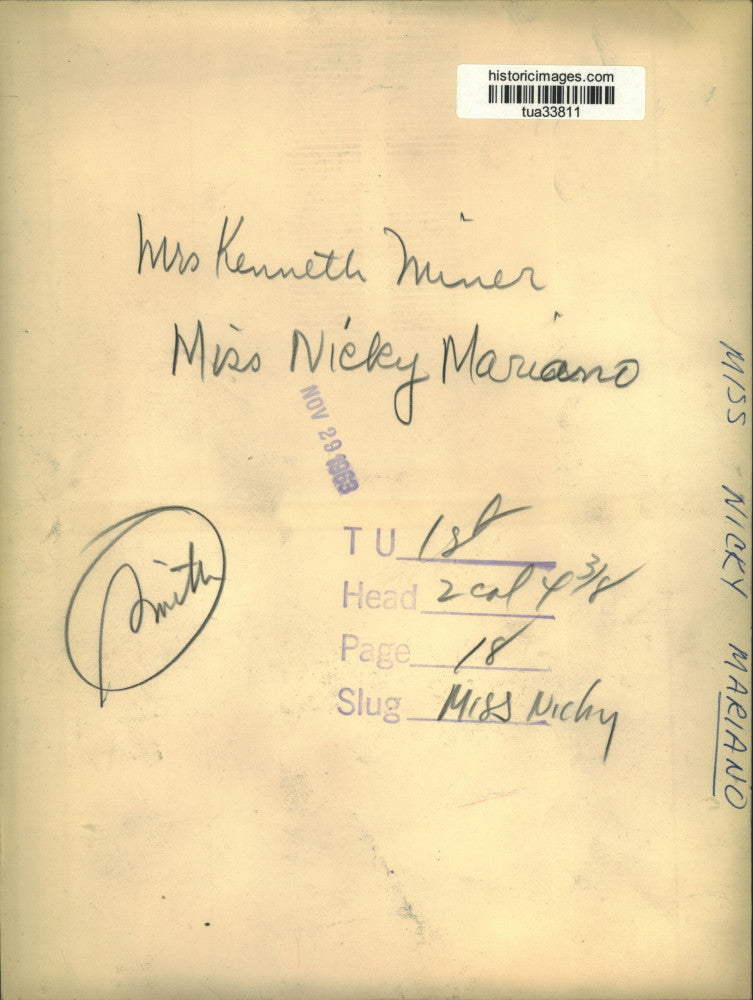 historicimages.com
tua33811
Mrs Kenneth Miner
Miss Nicky Mariano
NOV 29 1963
TU 1st
Head 2 col 4 3/8
Page 18
Slug Miss Nicky
Smith
MISS NICKY MARIANO